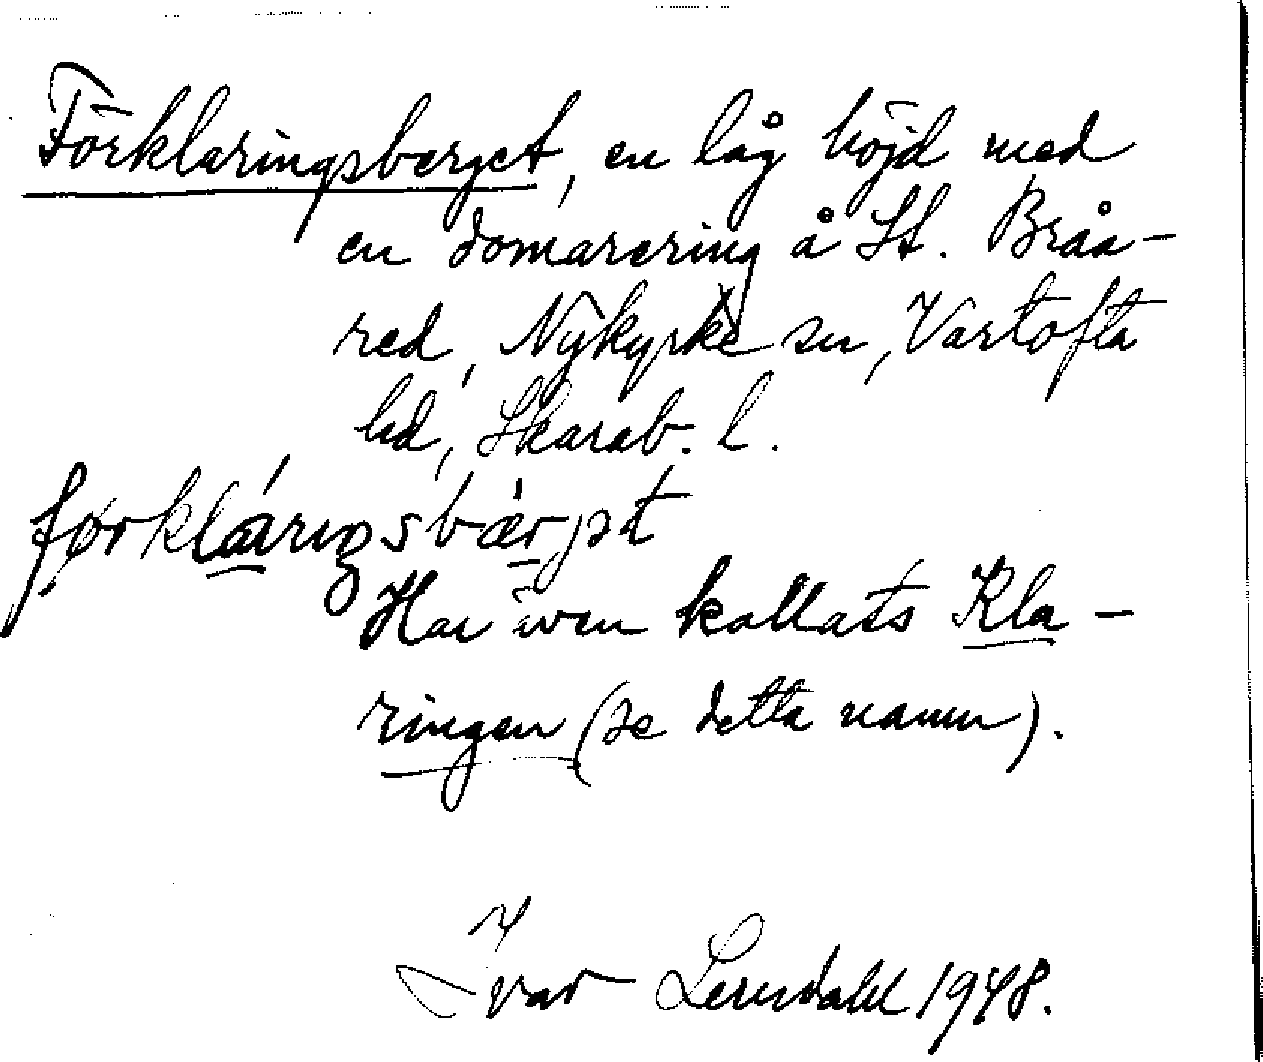 Förklaringsberget, en låg höjd med
en domarering å St. Bråa-
red, Nykyrke sn, Vartofta
hd, Skarab. l.
førkláriŋsbær̀jət
Har även kallats Kla-
ringen (se detta namn).
Ivar Lerndahl 1948.